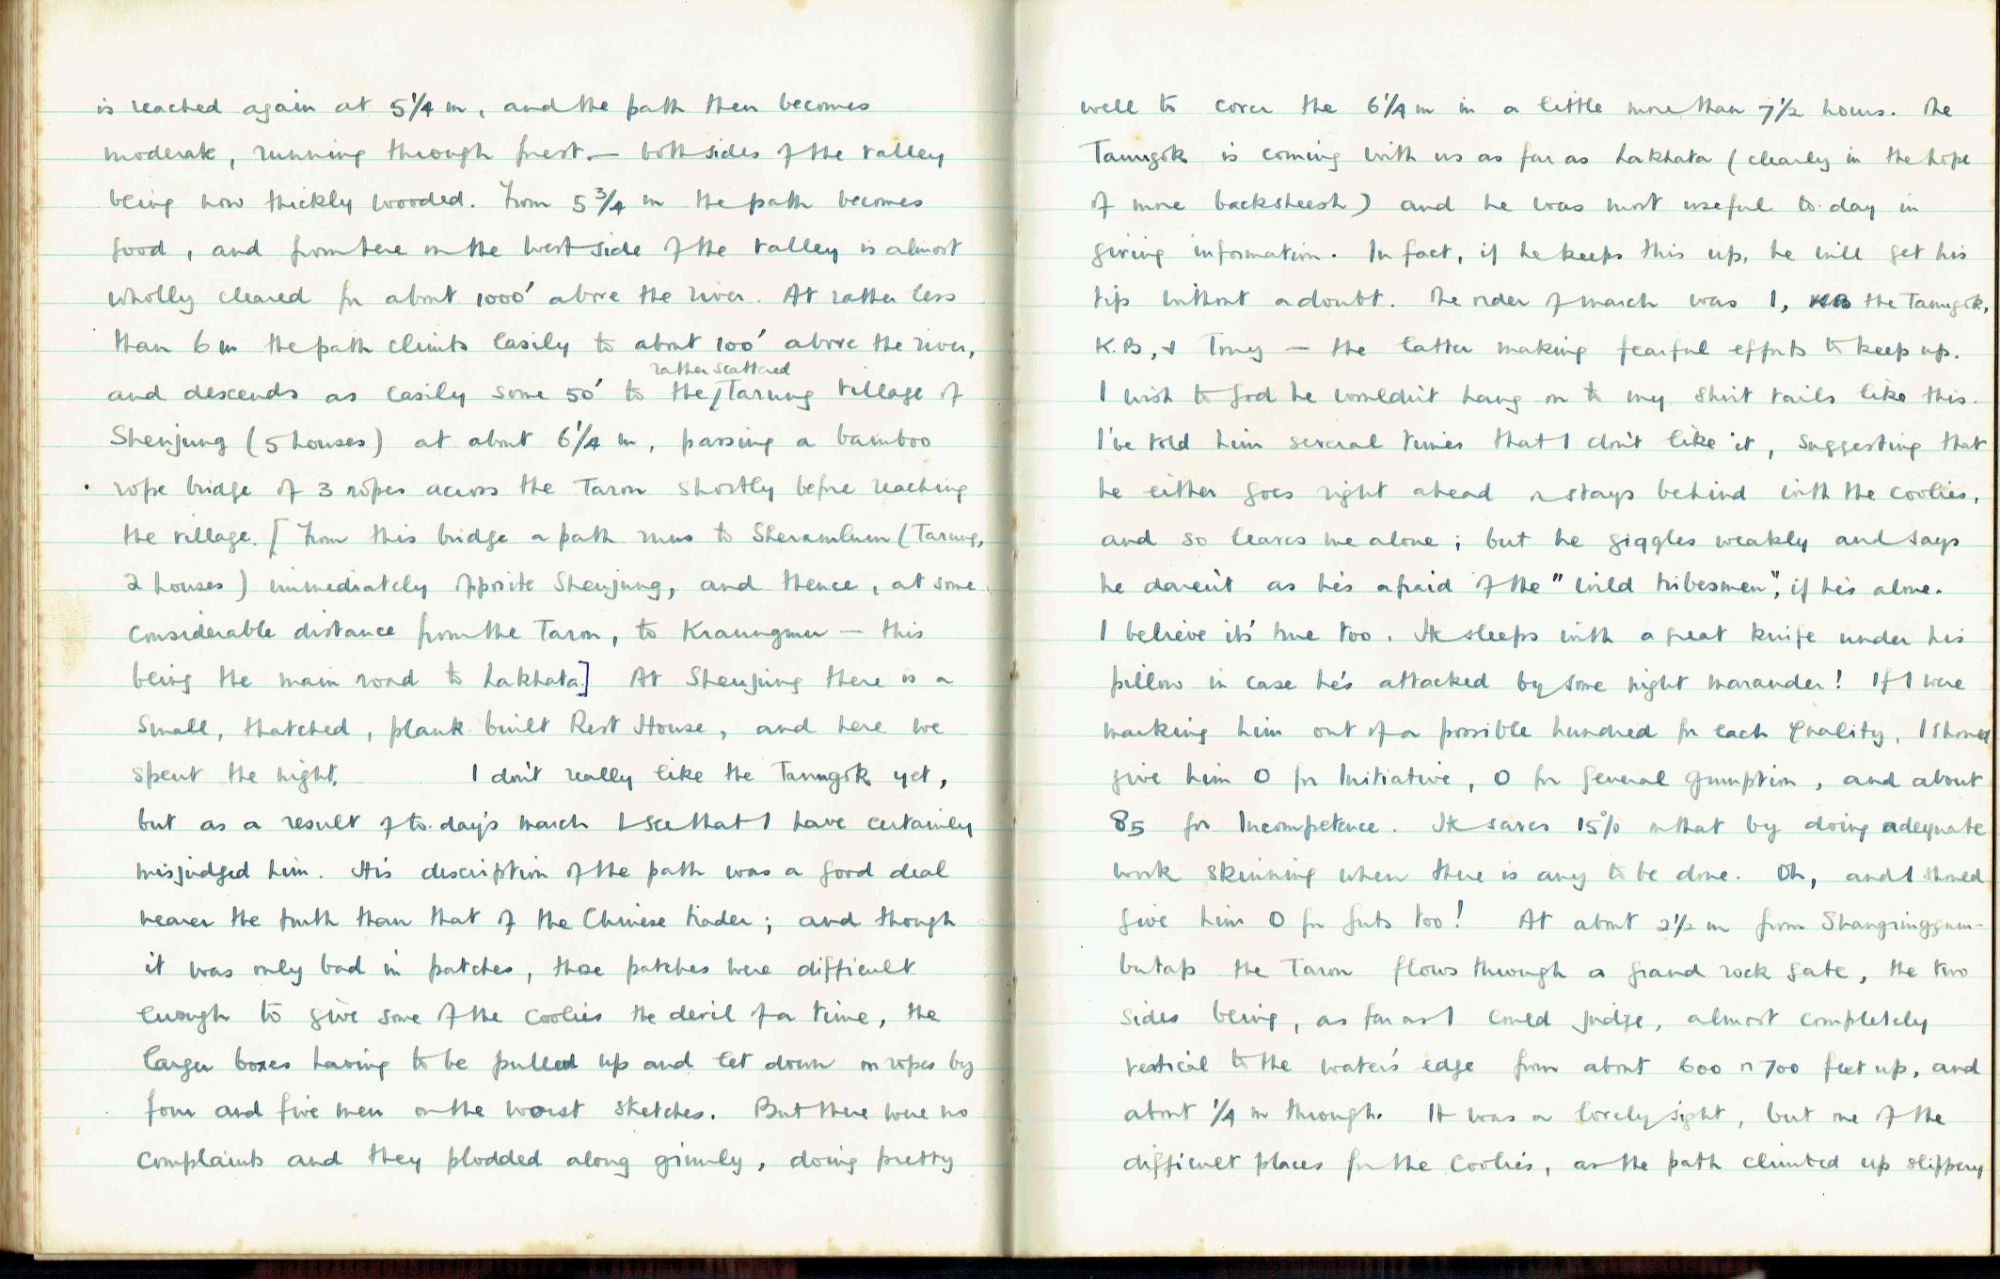 is reached again at 5¼ m, and the path then becomes
moderate, running through forest. — both sides of the valley
being now thickly wooded. From 5¾ m the path becomes
good, and from here on the west side of the valley is almost
wholly cleared for about 1000' above the river. At rather less
than 6 m the path climbs easily to about 100' above the river,
rather scattered
and descends as easily some 50' to the Tarung village of
Shenjung (5 houses) at about 6¼ m, passing a bamboo
rope bridge of 3 ropes across the Taron shortly before reaching
the village. [From this bridge a path runs to Sheramlum (Tarung,
2 houses) immediately opposite Shenjung, and thence, at some
considerable distance from the Taron, to Kraungmu — this
being the main road to Lakhata] At Shenjung there is a
small, thatched, plank built Rest House, and here we
spent the night. I don't really like the Taungôk yet,
but as a result of to-day's march I see that I have certainly
misjudged him. His description of the path was a good deal
nearer the truth than that of the Chinese trader; and though
it was only bad in patches, those patches were difficult
enough to give some of the coolies the devil of a time, the
larger boxes having to be pulled up and let down on ropes by
four and five men on the worst sketches. But there were no
complaints and they plodded along grimly, doing pretty
well to cover the 6¼ m in a little more than 7½ hours. The
Taungôk is coming with us as far as Lakhata (clearly in the hope
of more backsheesh) and he was most useful to-day in
giving information. In fact, if he keeps this up, he will get his
tip without a doubt. The order of march was I, KB the Taungôk,
K.B, & Tony — the latter making fearful efforts to keep up.
I wish to God he wouldn't hang on to my shirt tails like this.
I've told him several times that I don't like it, suggesting that
he either goes right ahead or stays behind with the coolies,
and so leaves me alone; but he giggles weakly and says
he daren't as he's afraid of the "wild tribesmen", if he's alone.
I believe it's true too. He sleeps with a great knife under his
pillow in case he's attacked by some night marauder! If I were
marking him out of a possible hundred for each quality, I should
give him 0 for Initiative, 0 for General Gumption, and about
85 for Incompetence. He saves 15% on that by doing adequate
work skinning when there is any to be done. Oh, and I should
give him 0 for guts too! At about 2½ m from Shangringgam-
butap the Taron flows through a grand rock gate, the two
sides being, as far as I could judge, almost completely
vertical to the water's edge from about 600 or 700 feet up, and
about ¼ m through. It was a lovely sight, but one of the
difficult places for the coolies, as the path climbed up slippery